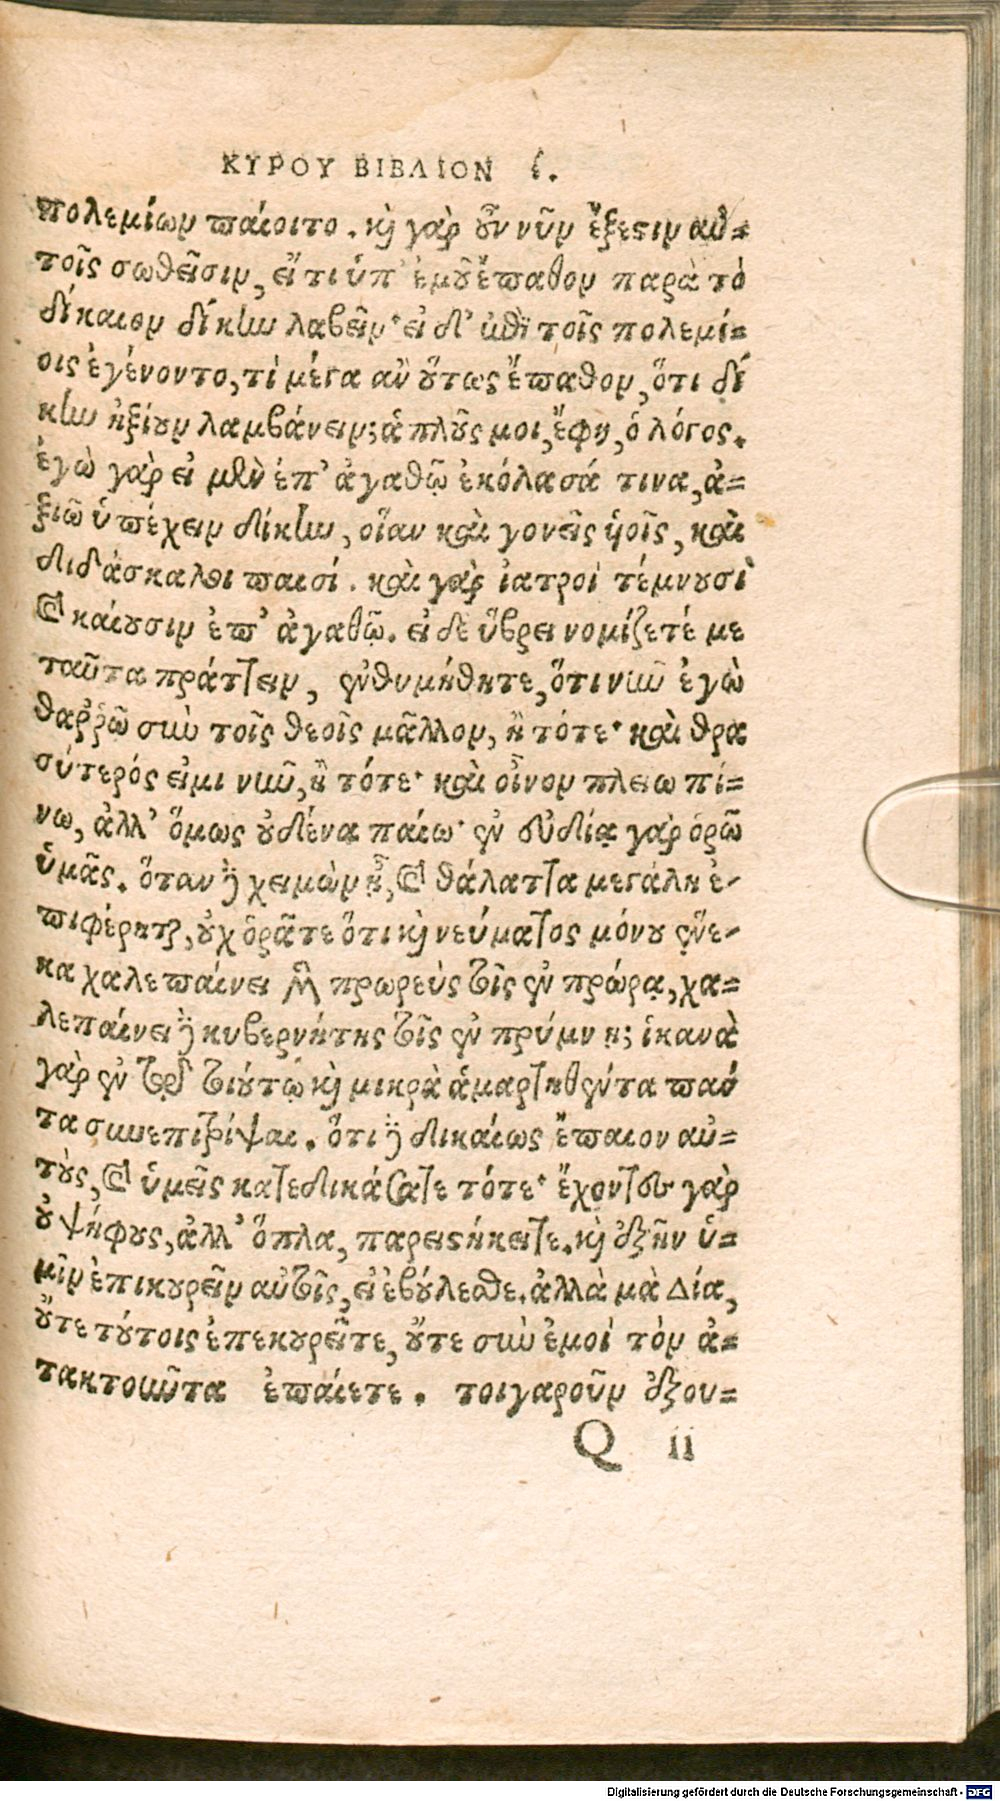 ΚΥΡΟΥ ΒΙΒΛΙΟΝ έ.
πολεμίων παίοιτο. καὶ γὰρ οὖν νῦν ἔξεστιν αὐ=
τοῖς σωθεῖσιν, εἴ τι ὑπ' ἐμοῦ ἔπαθον παρὰ τὸ
δίκαιον δίκην λαβεῖν· εἰ δ' ἐπὶ τοῖς πολεμί=
οις ἐγένοντο, τί μέγα ἂν οὕτως ἔπαθον, ὅτι δί
κην ἠξίουν λαμβάνειν; ἁπλοῦς μοι, ἔφη, ὁ λόγος.
ἐγὼ γὰρ εἰ μὲν ἐπ' ἀγαθῷ ἐκόλασά τινα, ἀ=
ξιῶ ὑπέχειν δίκην, οἵαν καὶ γονεῖς ὑοῖς, καὶ
διδάσκαλοι παισί. καὶ γὰρ ἰατροὶ τέμνουσι
καὶ καίουσιν ἐπ' ἀγαθῷ. εἰ δὲ ὕβρει νομίζετέ με
ταῦτα πράττειν, ἐνθυμήθητε, ὅτι νῦν ἐγὼ
θαῤῥῶ σὺν τοῖς θεοῖς μᾶλλον, ἢ τότε· καὶ θρα
σύτερός εἰμι νῦν, ἢ τότε· καὶ οἶνον πλείω πί=
νω, ἀλλ' ὅμως οὐδένα παίω· ἐν εὐδίᾳ γὰρ ὁρῶ
ὑμᾶς. ὅταν δὲ χειμὼν ᾖ, καὶ θάλαττα μεγάλη ἐ-
πιφέρηται, οὐχ ὁρᾶτε ὅτι καὶ νεύματος μόνου ἕνε-
κα χαλεπαίνει μὲν πρωρεὺς τοῖς ἐν πρώρᾳ, χα=
λεπαίνει δὲ κυβερνήτης τοῖς ἐν πρύμνῃ; ἱκανὰ
γὰρ ἐν τῷ τοιούτῳ καὶ μικρὰ ἁμαρτηθέντα πάν
τα συνεπιτρίψαι. ὅτι δὲ δικαίως ἔπαιον αὐ=
τοὺς, καὶ ὑμεῖς κατεδικάσατε τότε· ἔχοντες γὰρ
οὐ ψήφους, ἀλλ' ὅπλα, παρειστήκειτε. καὶ ἐξῆν ὑ=
μῖν ἐπικουρεῖν αὐτοῖς, εἰ ἐβούλεσθε. ἀλλὰ μὰ Δία,
οὔτε τούτοις ἐπεκουρεῖτε, οὔτε σὺν ἐμοὶ τὸν ἀ=
τακτοῦντα ἐπαίετε. τοιγαροῦν ἐξου=
Q ii
Digitalisierung gefördert durch die Deutsche Forschungsgemeinschaft - DFG